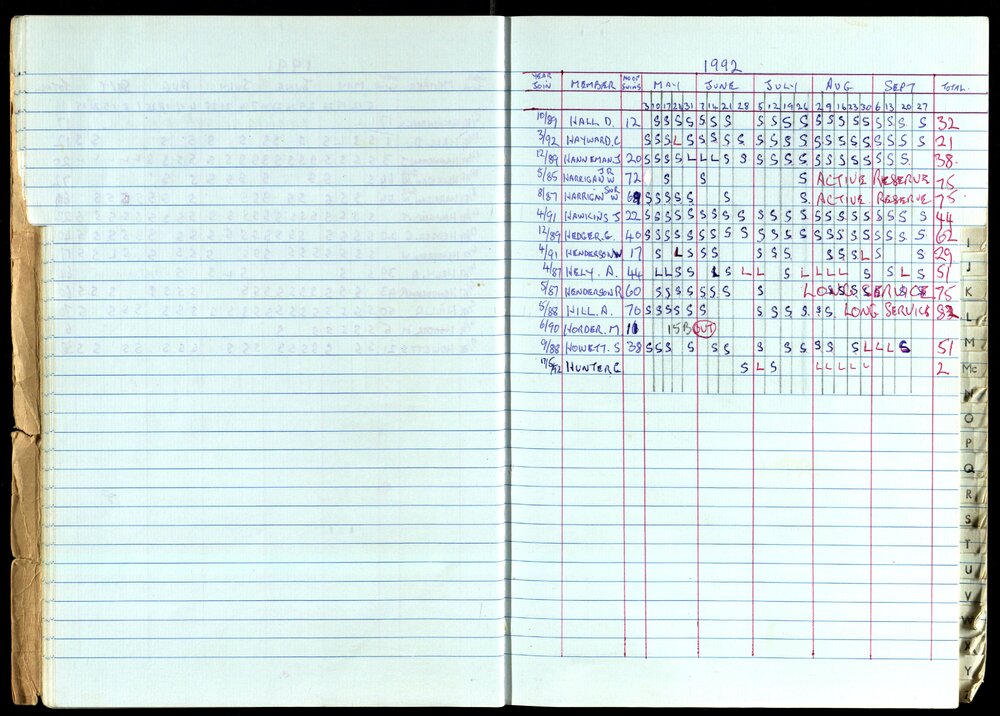 1992
YEAR JOIN MEMBER NO OF SWIMS MAY JUNE JULY AUG SEPT TOTAL.
3 10 17 24 31 7 14 21 28 5 12 19 26 2 9 16 23 30 6 13 20 27
10/89 HALL D. 12 S S S S S S S S S S S S S S S S S S S S 32
3/92 HAYWARD. C S S S L S S S S S S S S S S S S S S S S S S 21
12/89 HANNEMAN. J 20 S S S S L L L S S S S S S S S S S S S S S 38.
5/85 HARRIGAN JR W 72 S S S ACTIVE RESERVE 75
8/87 HARRIGAN SNR W 69 S S S S S S S ACTIVE RESERVE 75
4/91 HAWKINS J 22 S S S S S S S S S S S S S S S S S S S S S S 44
12/89 HEDGER. G. 40 S S S S S S S S S S S S S S S S S S S S S S 62
4/91 HENDERSON W 17 S L S S S S S S S S S L S S 29
4/87 HELY. A. 44 L L S S L S L L S L L L L S S L S 51
5/87 HENDERSON R 60 S S S S S S S S S LONG SERVICE 75
5/88 HILL. A. 70 S S S S S S S S S S S S LONG SERVICE 82
6/90 HORDER. M 11 15 B OUT
9/88 HOWETT. S 38 S S S S S S S S S S S S L L L S 51
17/5/92 HUNTER G S L S L L L L L 2
I
J
K
L
M
Mc
N
O
P
Q
R
S
T
U
V
W
X
Y